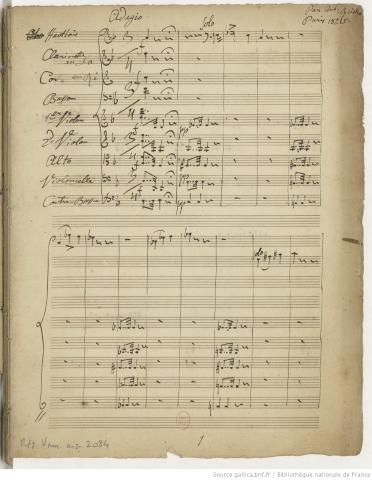 Adagio
Solo
Paris 1826
Hautbois
Clarinettes
Cor
Basson
1er Violon
2e Violon
Alto
Violoncelle
Contre Basse
Solo
1
Rés. Vma. ms. 2084
Source gallica.bnf.fr / Bibliothèque nationale de France